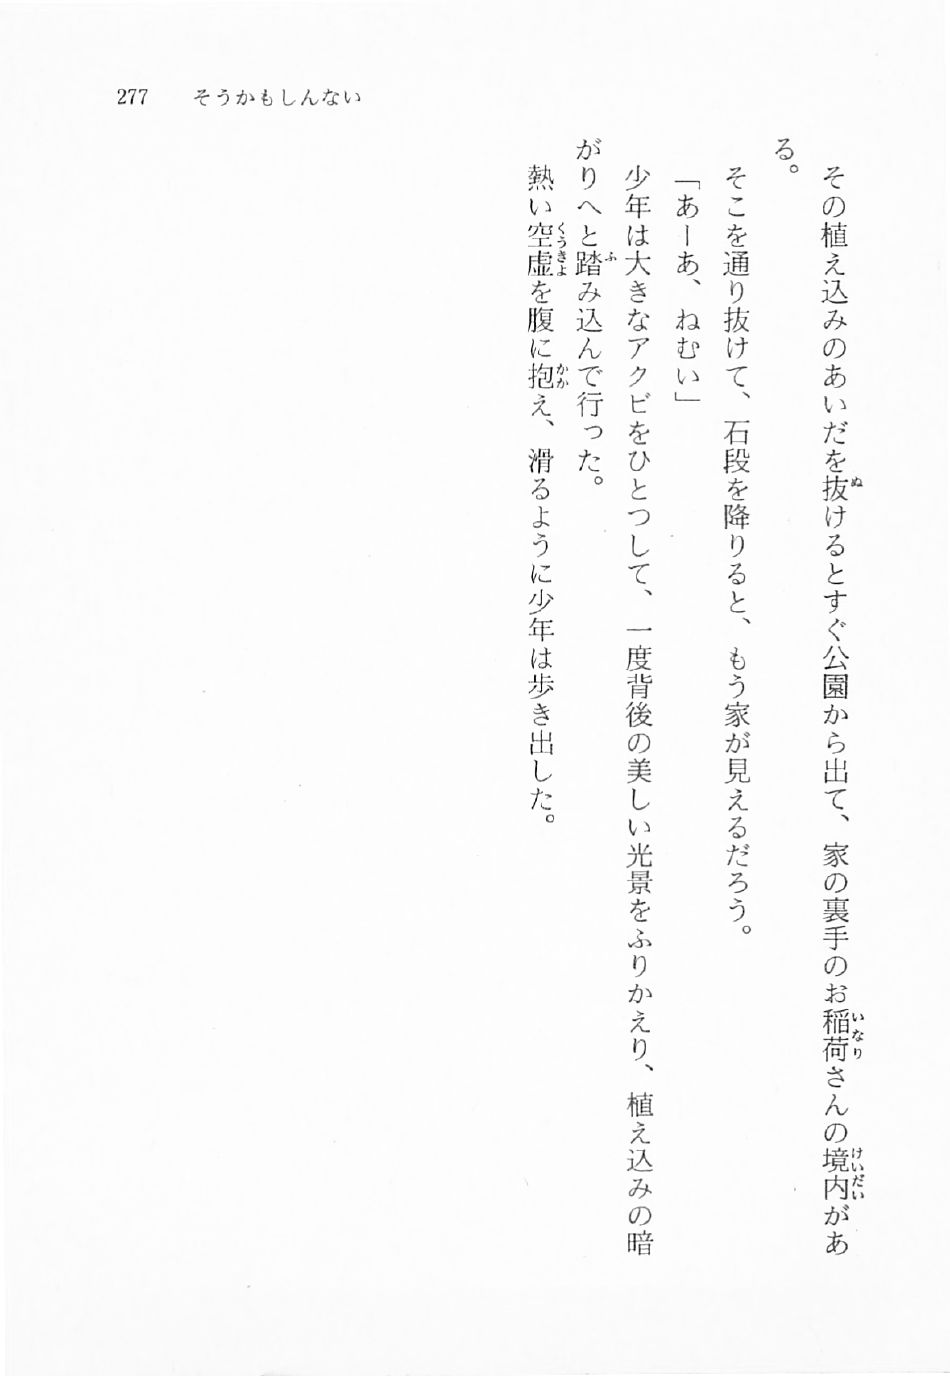 277 そうかもしんない
その植え込みのあいだを抜けるとすぐ公園から出て、家の裏手のお稲荷さんの境内があ
る。
そこを通り抜けて、石段を降りると、もう家が見えるだろう。
「あーあ、ねむい」
少年は大きなアクビをひとつして、一度背後の美しい光景をふりかえり、植え込みの暗
がりへと踏み込んで行った。
熱い空虚を腹に抱え、滑るように少年は歩き出した。